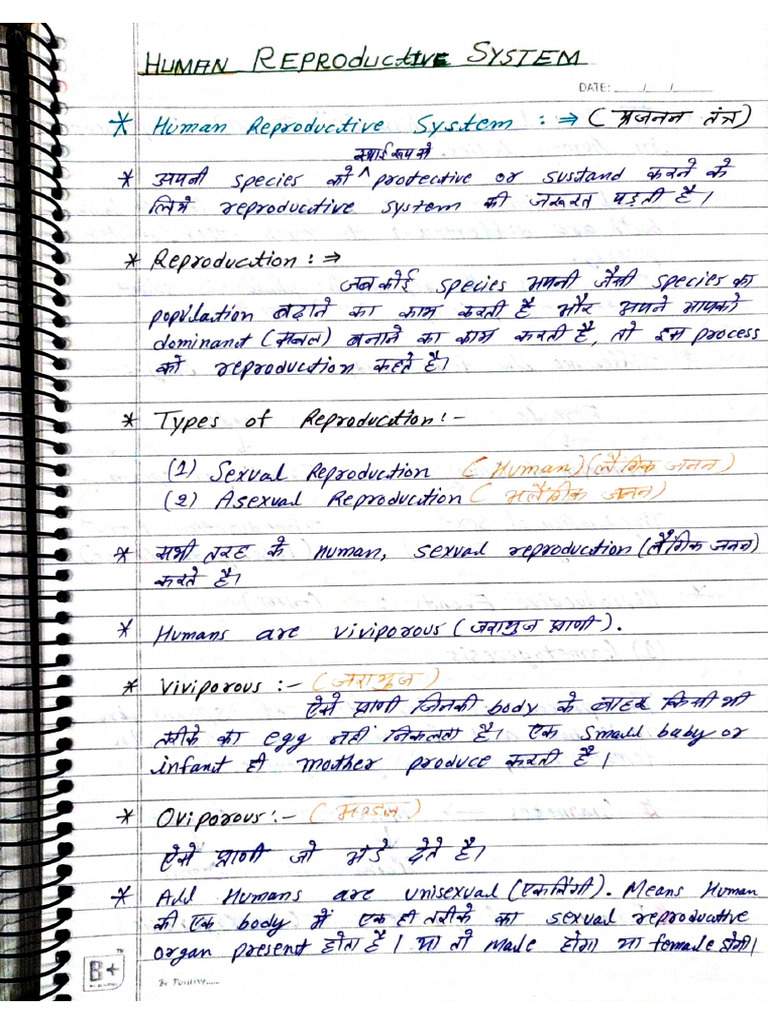 HUMAN REPRODUCTIVE SYSTEM
DATE: __/__/__
* Human Reproductive System : ⇒ (प्रजनन तंत्र)
स्थाई रूप से
* अपनी species को ^ protective or sustand करने के
लिये reproductive system की जरूरत पड़ती है।
* Reproduction : ⇒
जब कोई species अपनी जैसी species का
population बढ़ाने का काम करती है और अपने आपको
dominant (सबल) बनाने का काम करती है, तो इस process
को reproduction कहते है।
* Types of Reproduction :-
(1) Sexual Reproduction (Human) (लैंगिक जनन)
(2) Asexual Reproduction (अलैंगिक जनन)
* सभी तरह के human, sexual reproduction (लैंगिक जनन)
करते है।
* Humans are viviporous (जरायुज प्राणी).
* Viviporous :- (जरायुज)
ऐसे प्राणी जिनकी body के बाहर किसी भी
तरीके का egg नहीं निकलता है। एक small baby or
infant ही mother produce करती है।
* Oviporous :- (अण्डज)
ऐसे प्राणी जो अंडे देते है।
* All Humans are unisexual (एकलिंगी). Means Human
की एक body में एक ही तरीके का sexual reproductive
organ present होता है। या तो male होगा या female होगी।
B+
Be Positive......